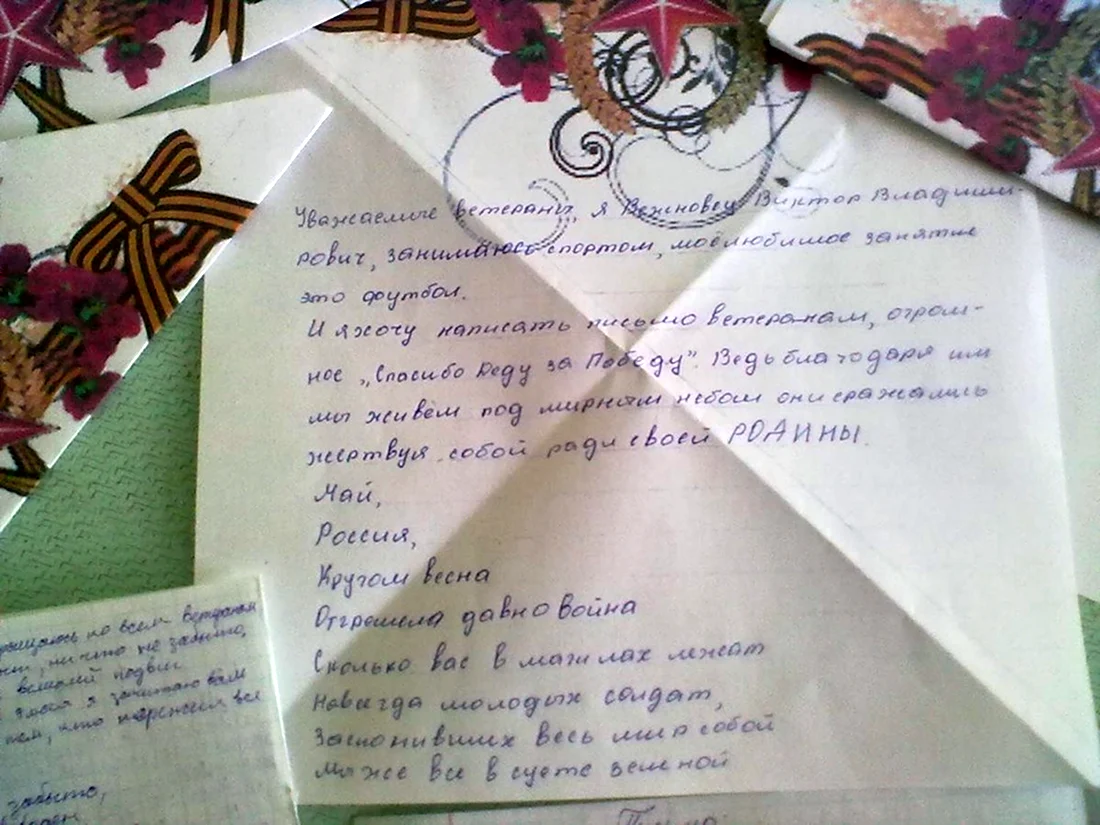 Уважаемые ветераны, я Вежновец Виктор Владими-
рович, занимаюсь спортом, моё любимое занятие
это футбол.
И я хочу написать письмо ветеранам, огром-
ное „Спасибо деду за Победу”. Ведь благодаря им
мы живём под мирным небом они сражались
жертвуя собой ради своей РОДИНЫ.
Май,
Россия,
Кругом весна
Отгремела давно война
Сколько вас в магилах лежат
Навсегда молодых солдат,
Заслонивших весь мир собой
Мы же все в суете земной
ко всем ветеранам
ни что не забыто,
подвиг
я зачитаю вам
что пережили все
забыто,
Письмо